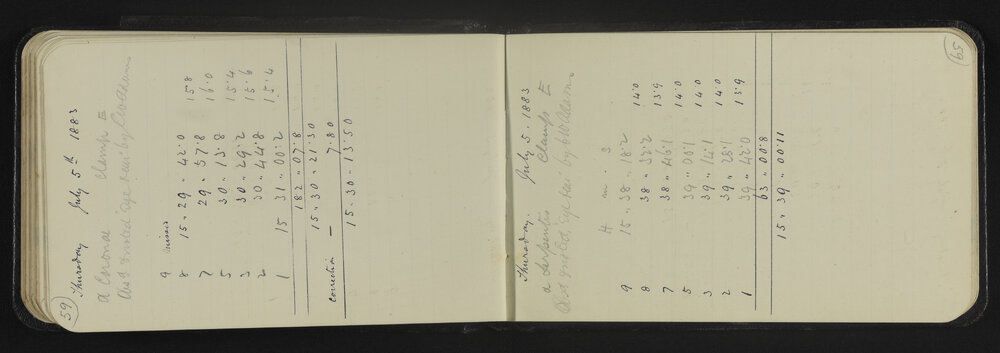 59
Thursday July 5th 1883
α Coronae Clamp E
Obsd & noted Eye & ear by
9 missed
8 15 " 29 " 42.0 15.8
7 29 " 57.8 16.0
5 30 " 13.8 15.4
3 30 " 29.2 15.6
2 30 " 44.8 15.4
1 15 31 " 00.2
182 " 07.8
15 " 30 " 21.30
correction — 7.80
15 " 30 " 13.50
59
Thursday. July 5. 1883
α Serpentis Clamp E
Obsd & noted, Eye & ear by
h m s
9 15 " 38 " 18.2 14.0
8 38 " 32.2 13.9
7 38 " 46.1 14.0
5 39 " 00.1 14.0
3 39 " 14.1 14.0
2 39 " 28.1 13.9
1 39 " 42.0
63 " 00.8
15 " 39 " 00.11